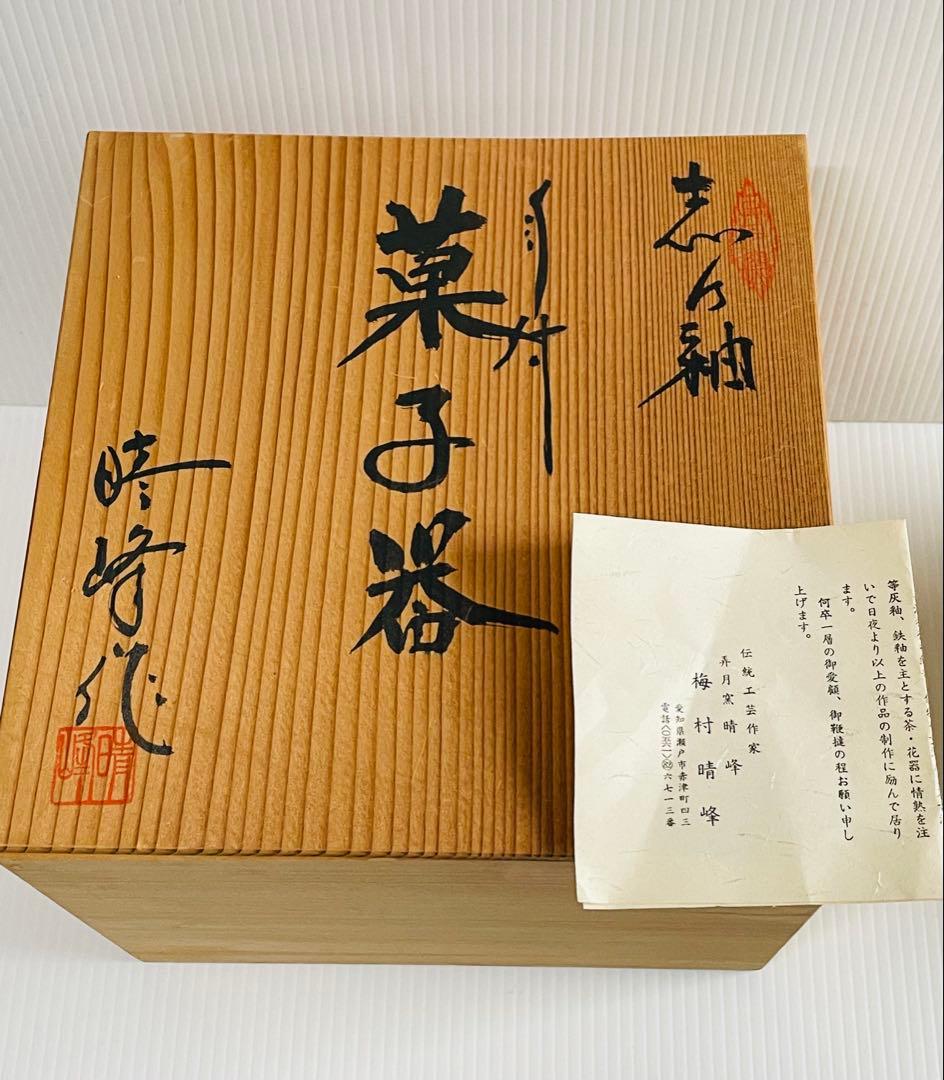 志の釉
手付
菓子器
晴峰作
晴峰
等灰釉、鉄釉を主とする茶・花器に情熱を注
いで日夜より以上の作品の制作に励んで居り
ます。
何卒一層の御愛顧、御鞭撻の程お願い申し
上げます。
伝統工芸作家
弄月窯 晴峰
梅村晴峰
愛知県瀬戸市赤津町四三